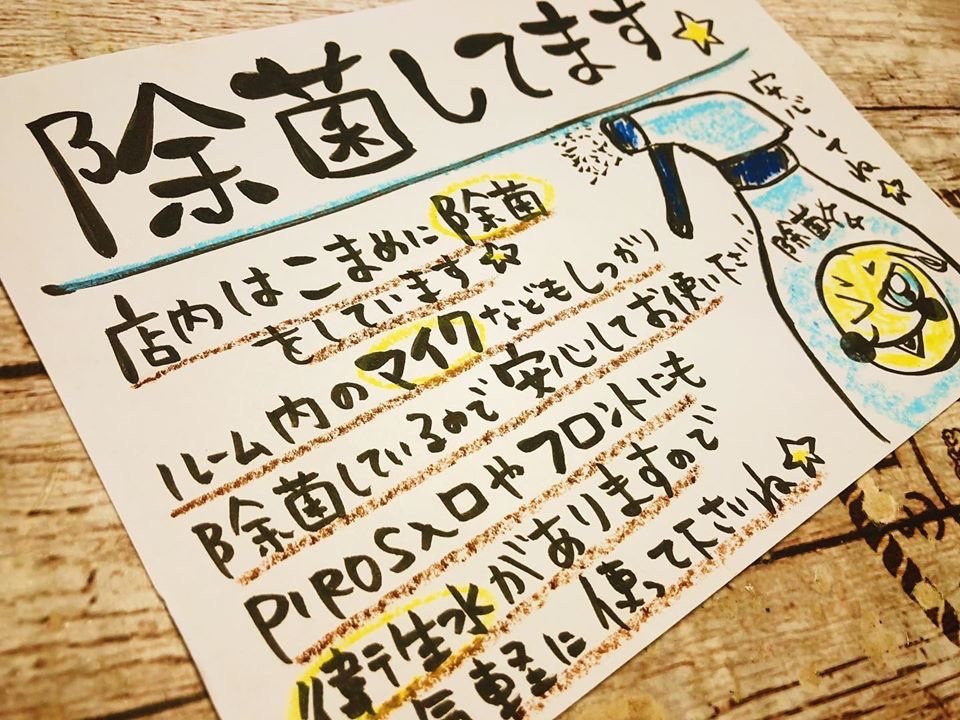 除菌してます
店内はこまめに除菌
をしています
ルーム内のマイクなどもしっかり
除菌しているので安心してお使い下さい…
PIROS入口やフロントにも
衛生水がありますので
気軽に使って下さいね
安心してね
除菌